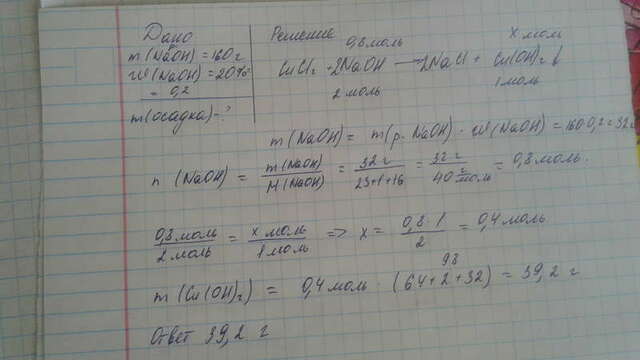 Дано
m(NaOH) = 160 г
w(NaOH) = 20%
= 0,2
m(осадка) - ?
Решение
0,8 моль x моль
CuCl₂ + 2NaOH → 2NaCl + Cu(OH)₂↓
2 моль 1 моль
m(NaOH) = m(р. NaOH) · w(NaOH) = 160·0,2 = 32
n(NaOH) = m(NaOH)/M(NaOH) = 32 г/23+1+16 = 32 г/40 г/моль = 0,8 моль.
0,8 моль/2 моль = x моль/1 моль => x = 0,8·1/2 = 0,4 моль
98
m(Cu(OH)₂) = 0,4 моль · (64+2+32) = 39,2 г
Ответ 39,2 г